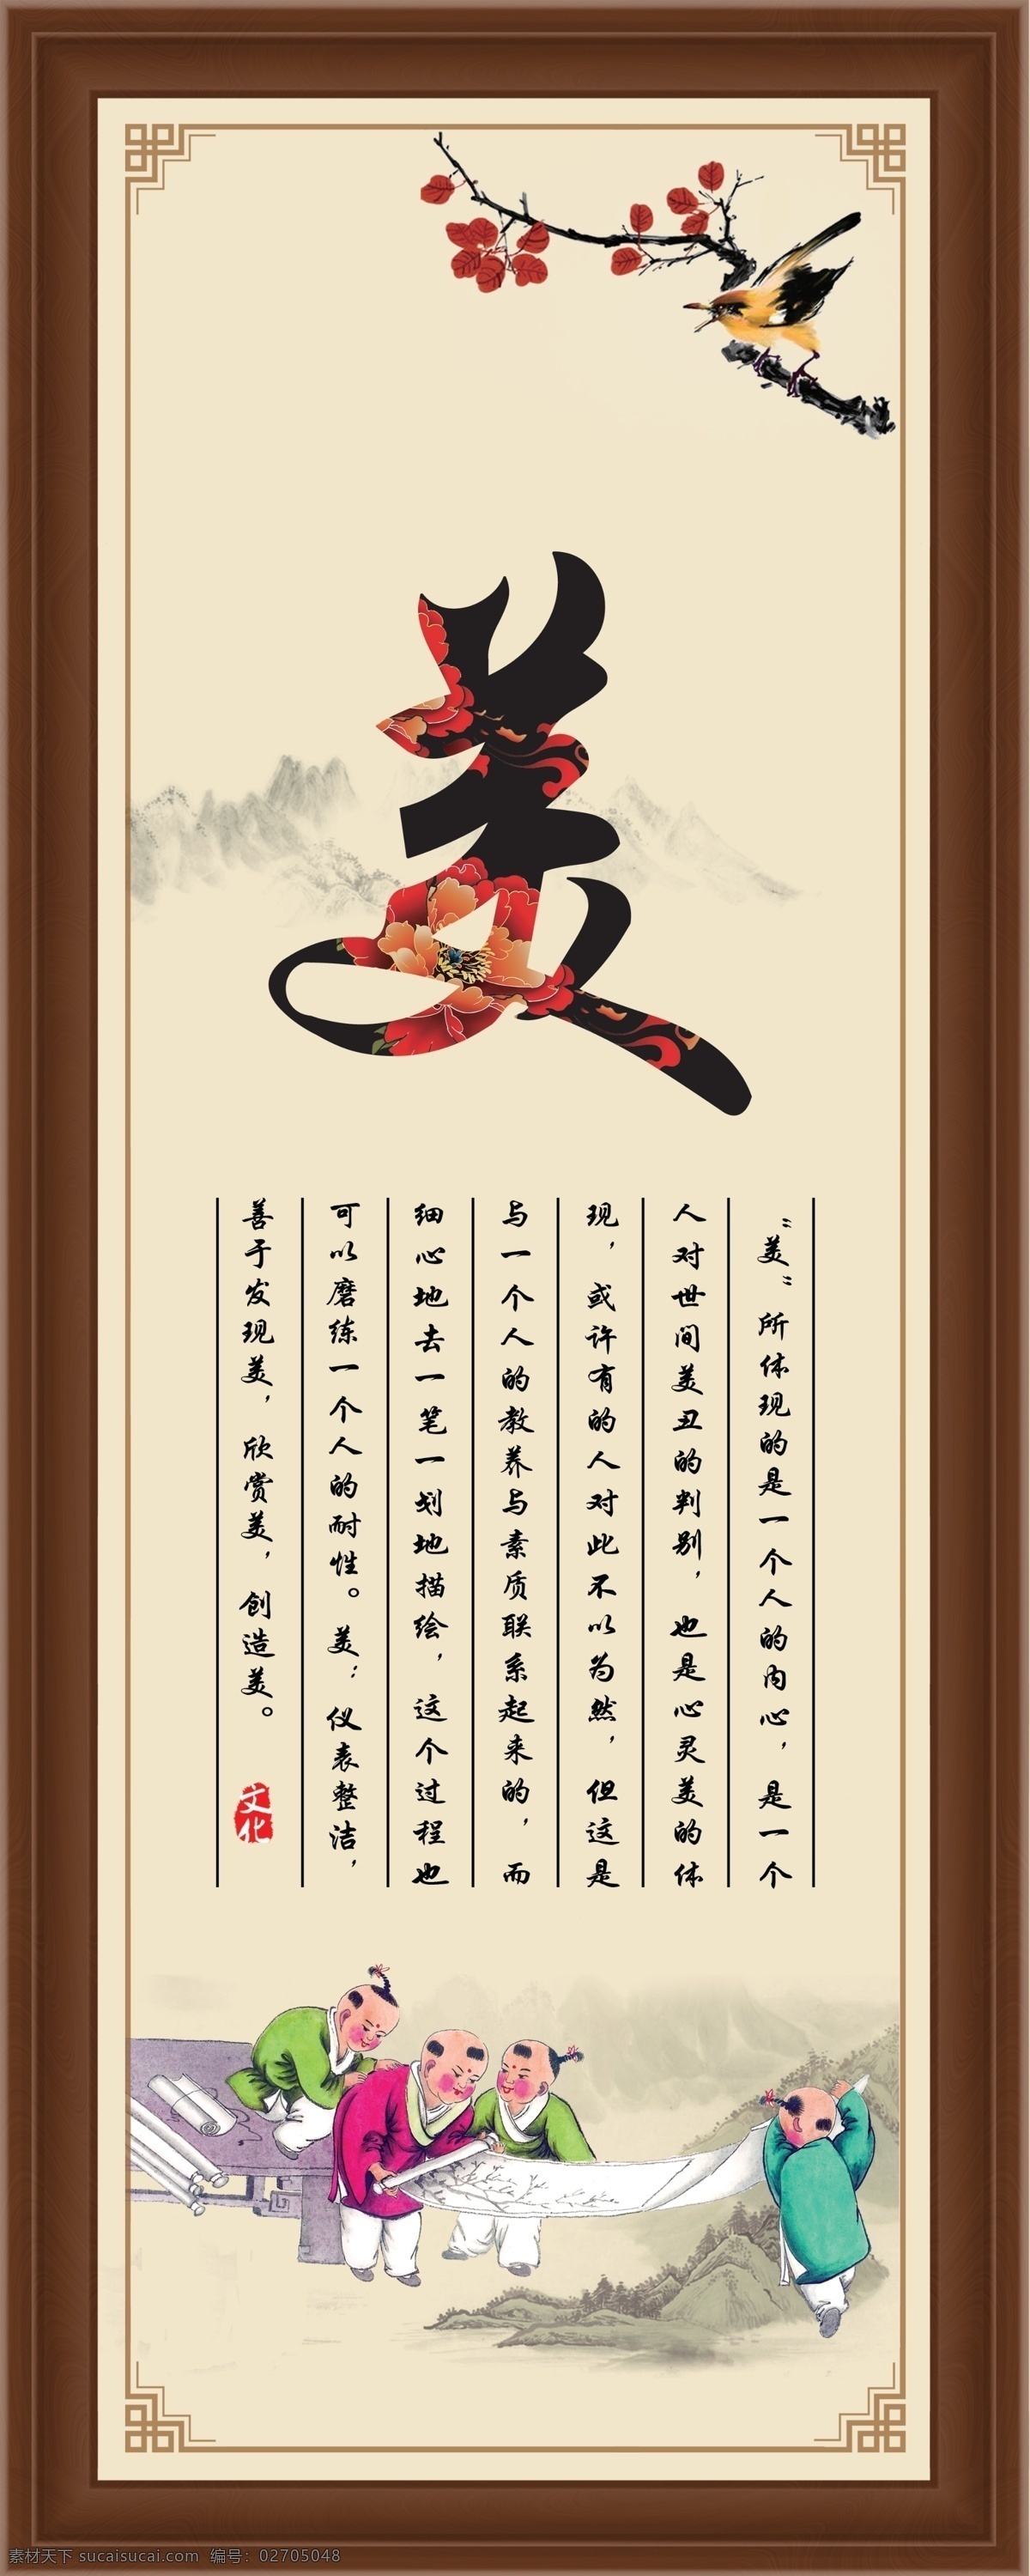 美
“美”所体现的是一个人的内心，是一个
人对世间美丑的判别，也是心灵美的体
现，或许有的人对此不以为然，但这是
与一个人的教养与素质联系起来的，而
细心地去一笔一划地描绘，这个过程也
可以磨练一个人的耐性。美：仪表整洁，
善于发现美，欣赏美，创造美。
文化
素材天下 sucaisucai.com 编号：02705048